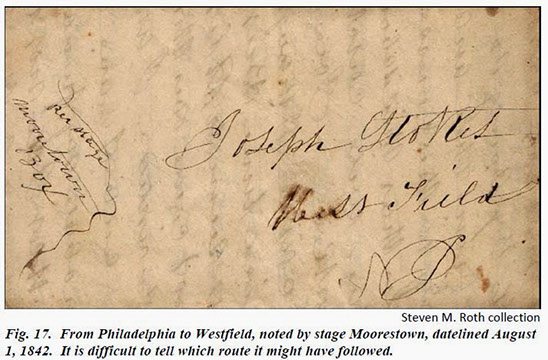 per stage
Moorestown
Box
Joseph Stokes
West Field
NJ
Steven M. Roth collection
Fig. 17. From Philadelphia to Westfield, noted by stage Moorestown, datelined August
1, 1842. It is difficult to tell which route it might have followed.